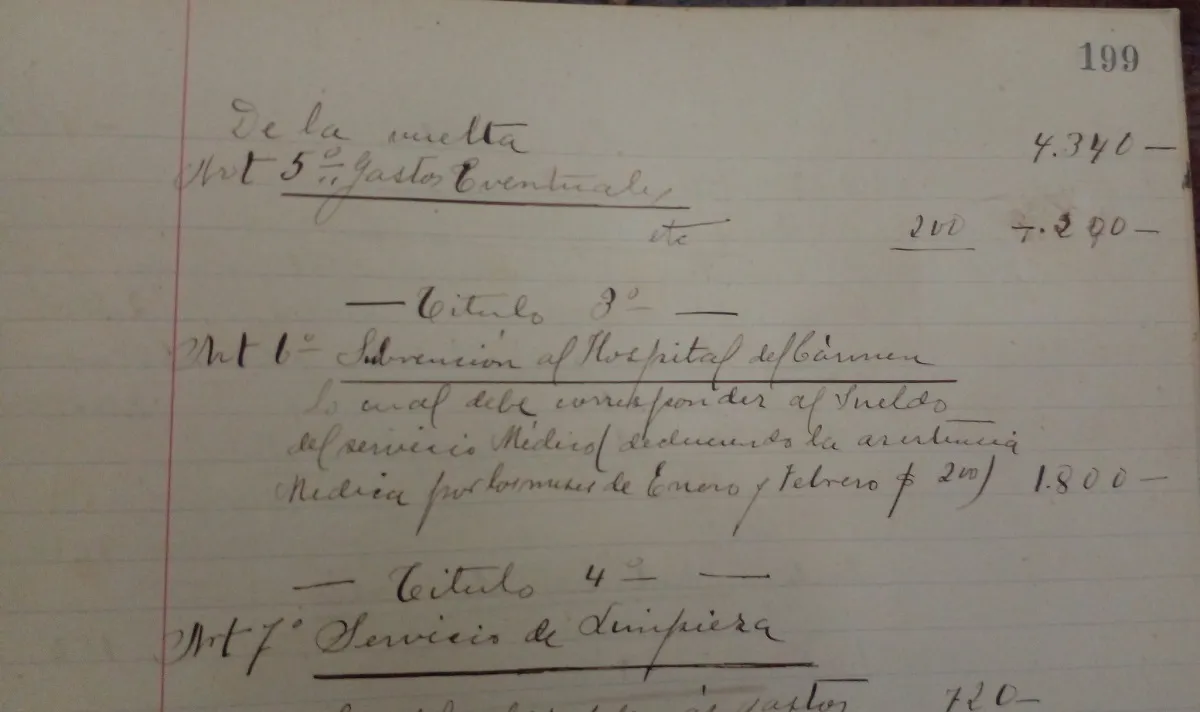 199
De la vuelta 4.340—
Art 5º Gastos Eventuales
etc 200
— Titulo 3º —
Art 6º Subvención al Hospital del Cármen
Lo cual debe corresponder al Sueldo
del servicio Médico (deduciendo la asistencia
Medica por los meses de Enero y Febrero $ 200) 1.800—
— Titulo 4º —
Art 7º Servicio de Limpieza
gastos 720—